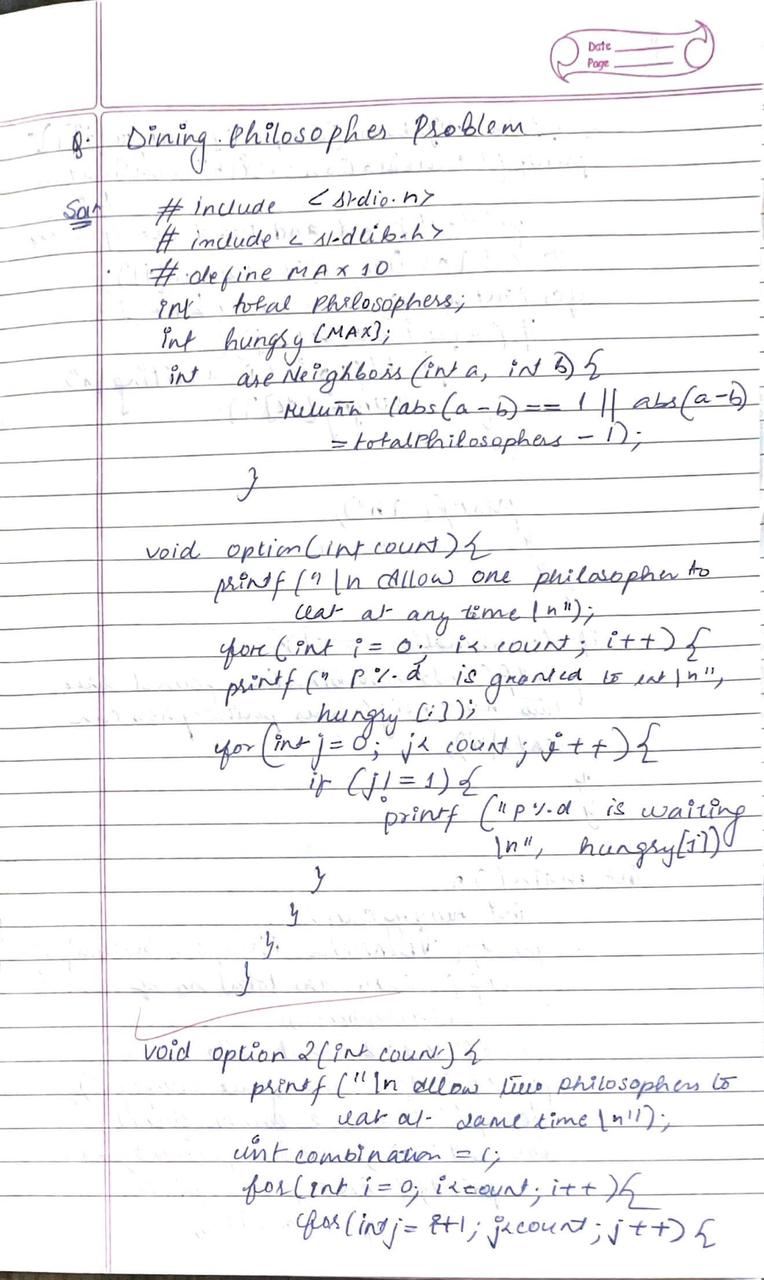 Date
Page
Q. Dining Philosopher Problem
Soln # include <stdio.h>
# include <stdlib.h>
# define MAX 10
int total Philosophers;
int hungry [MAX];
int are Neighbors (int a, int b) {
return (abs(a-b) == 1 || abs(a-b)
= totalPhilosophers - 1);
}
void option(int count) {
printf ("\n Allow one philosopher to
eat at any time \n");
for (int i = 0; i< count; i++) {
printf (" P%d is granted to eat \n",
hungry [i]);
for (int j = 0; j< count; j++) {
if (j! = 1) {
printf ("P%d is waiting
\n", hungry[j])
}
}
}.
}
void option 2(int count) {
printf ("\n allow two philosophers to
eat at same time \n");
int combination = 1;
for (int i = 0; i<count; i++) {
for (int j = i+1; j<count; j++) {